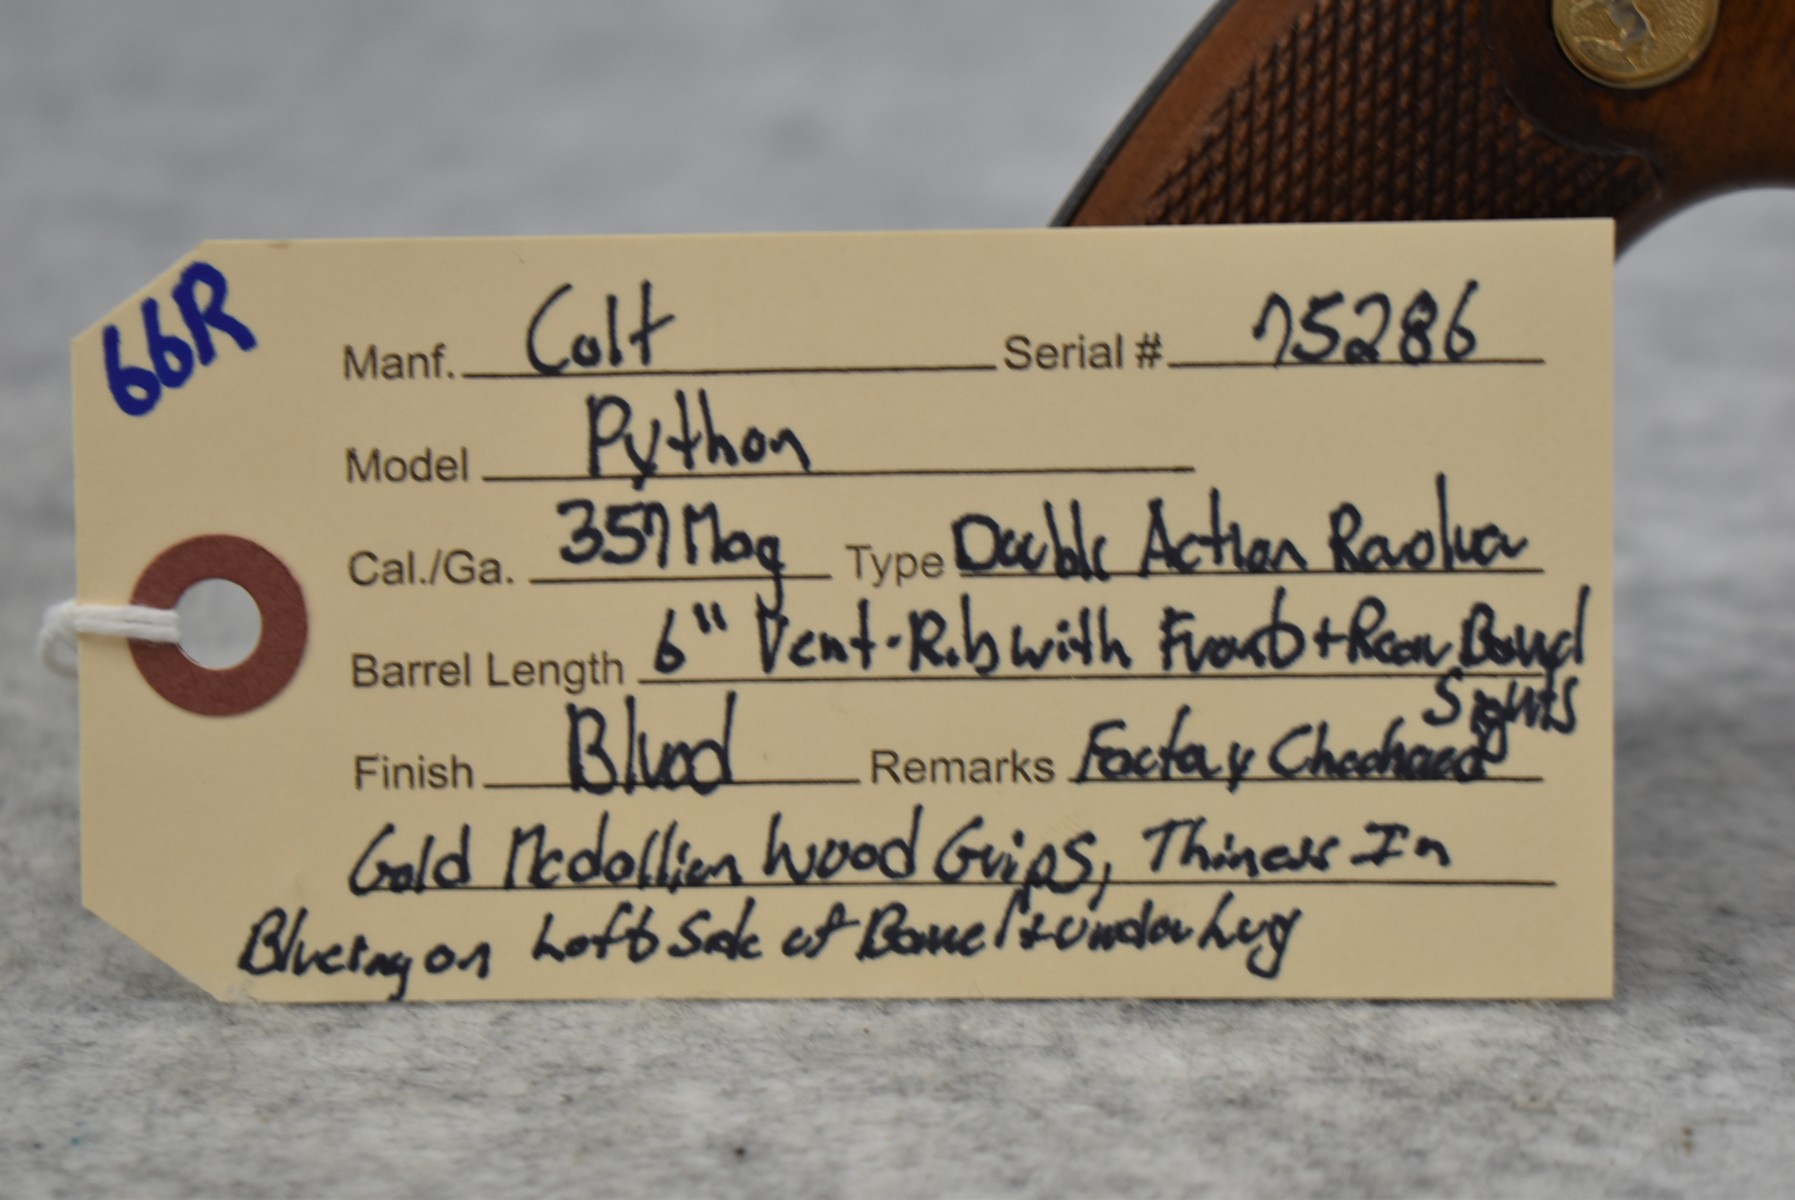 66R
Manf. Colt Serial # 75286
Model Python
Cal./Ga. 357 Mag Type Double Action Revolver
Barrel Length 6" Vent-Rib with Front + Rear Bowd
Sights
Finish Blued Remarks Factory Checkered
Gold Medallion Wood Grips, Thiness In
Blueing on Left Side of Barrel + Under Lug